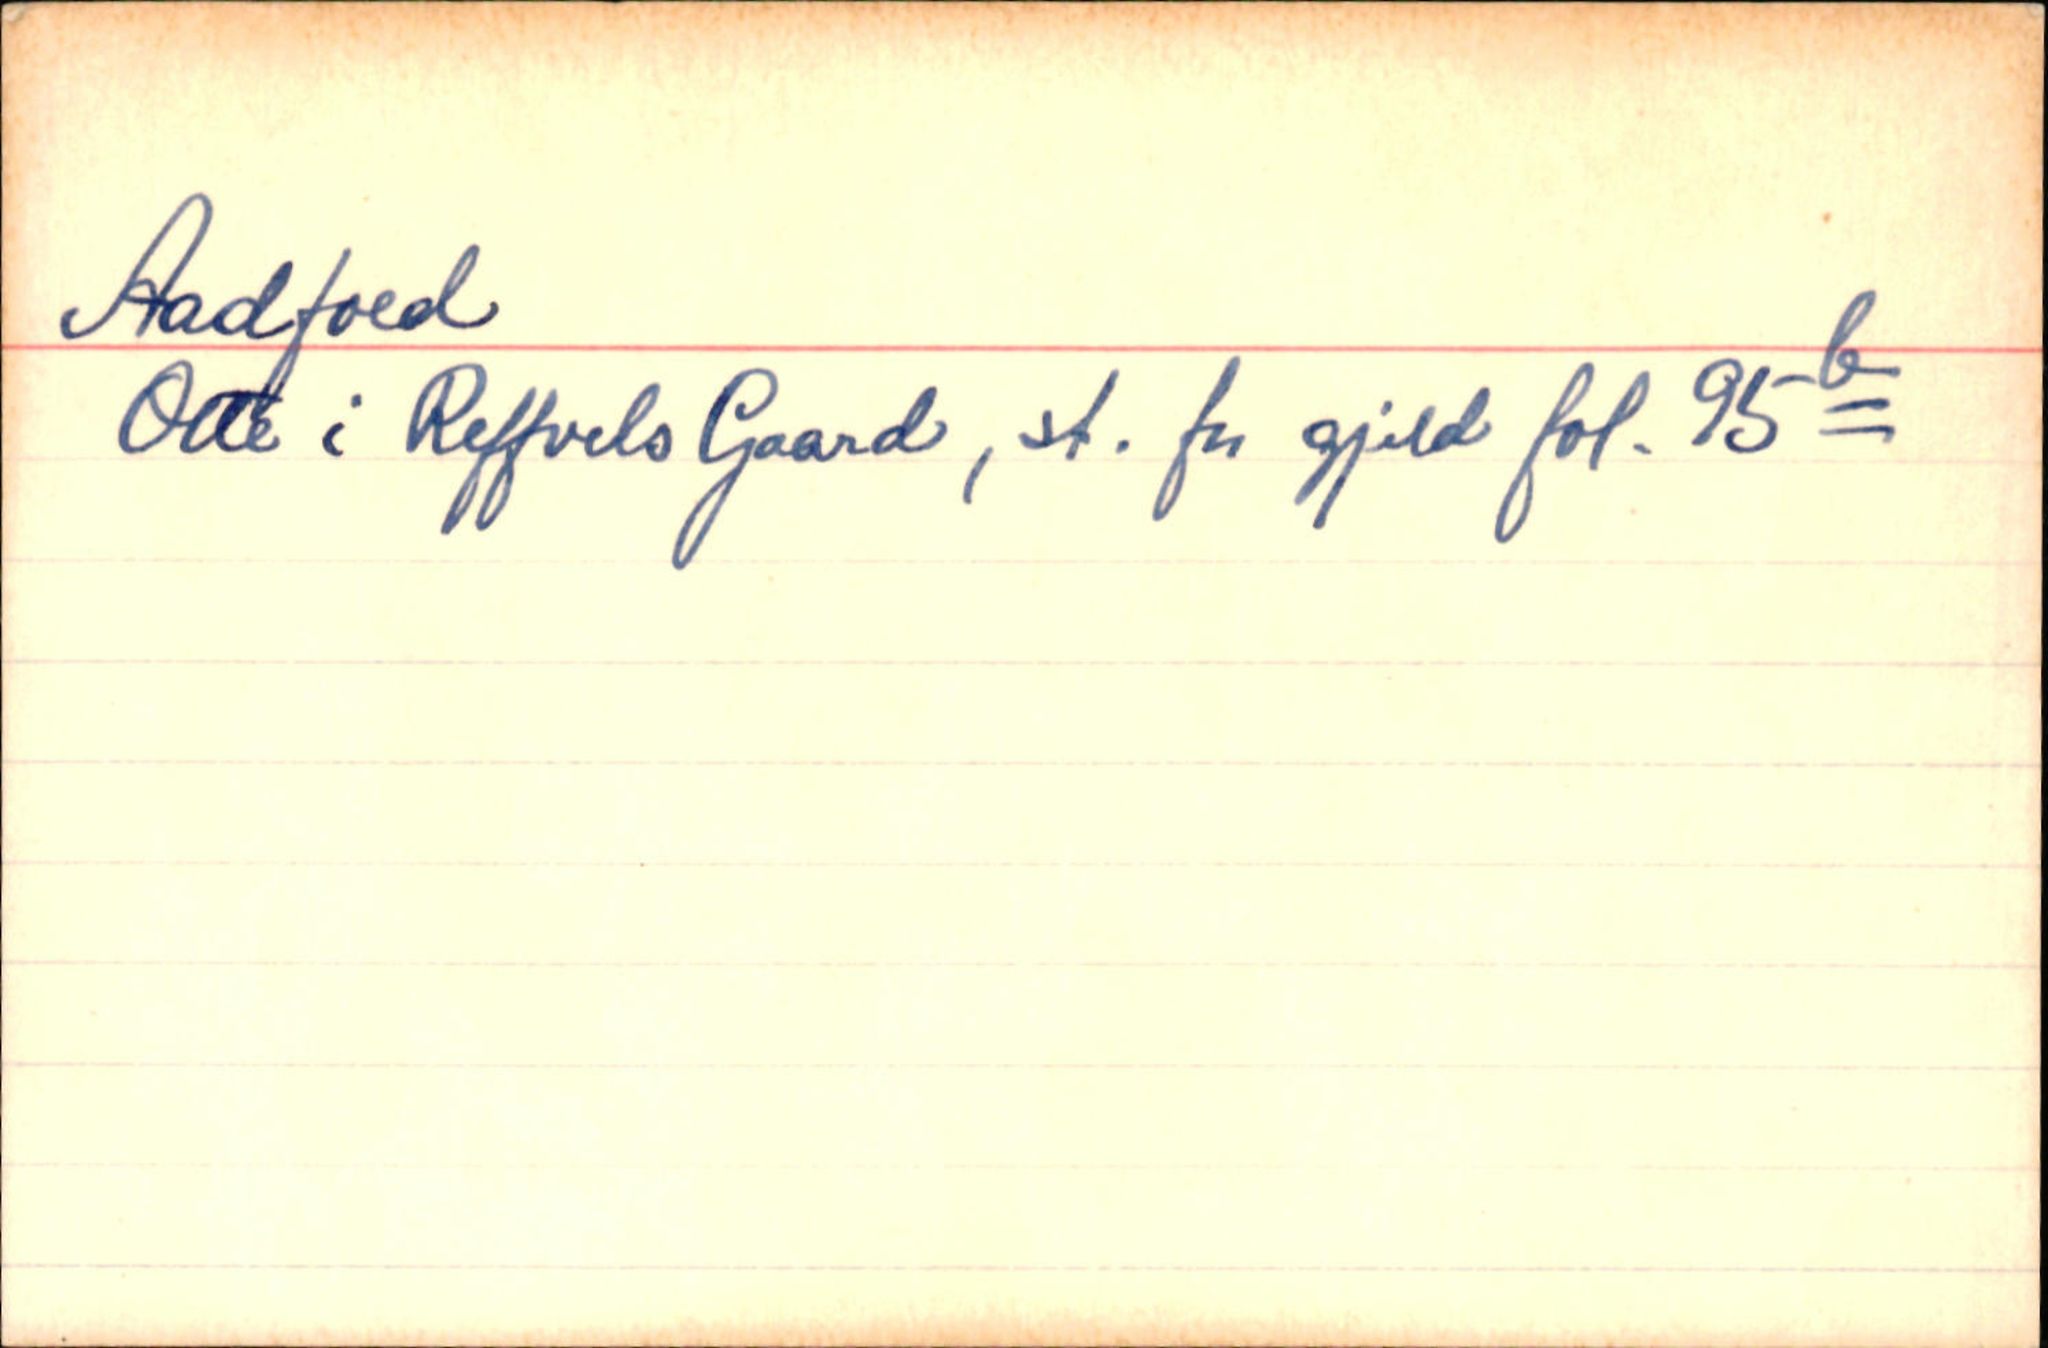 Aadfoed
Otte i Reffvels Gaard, st. for gjeld fol. 95 b